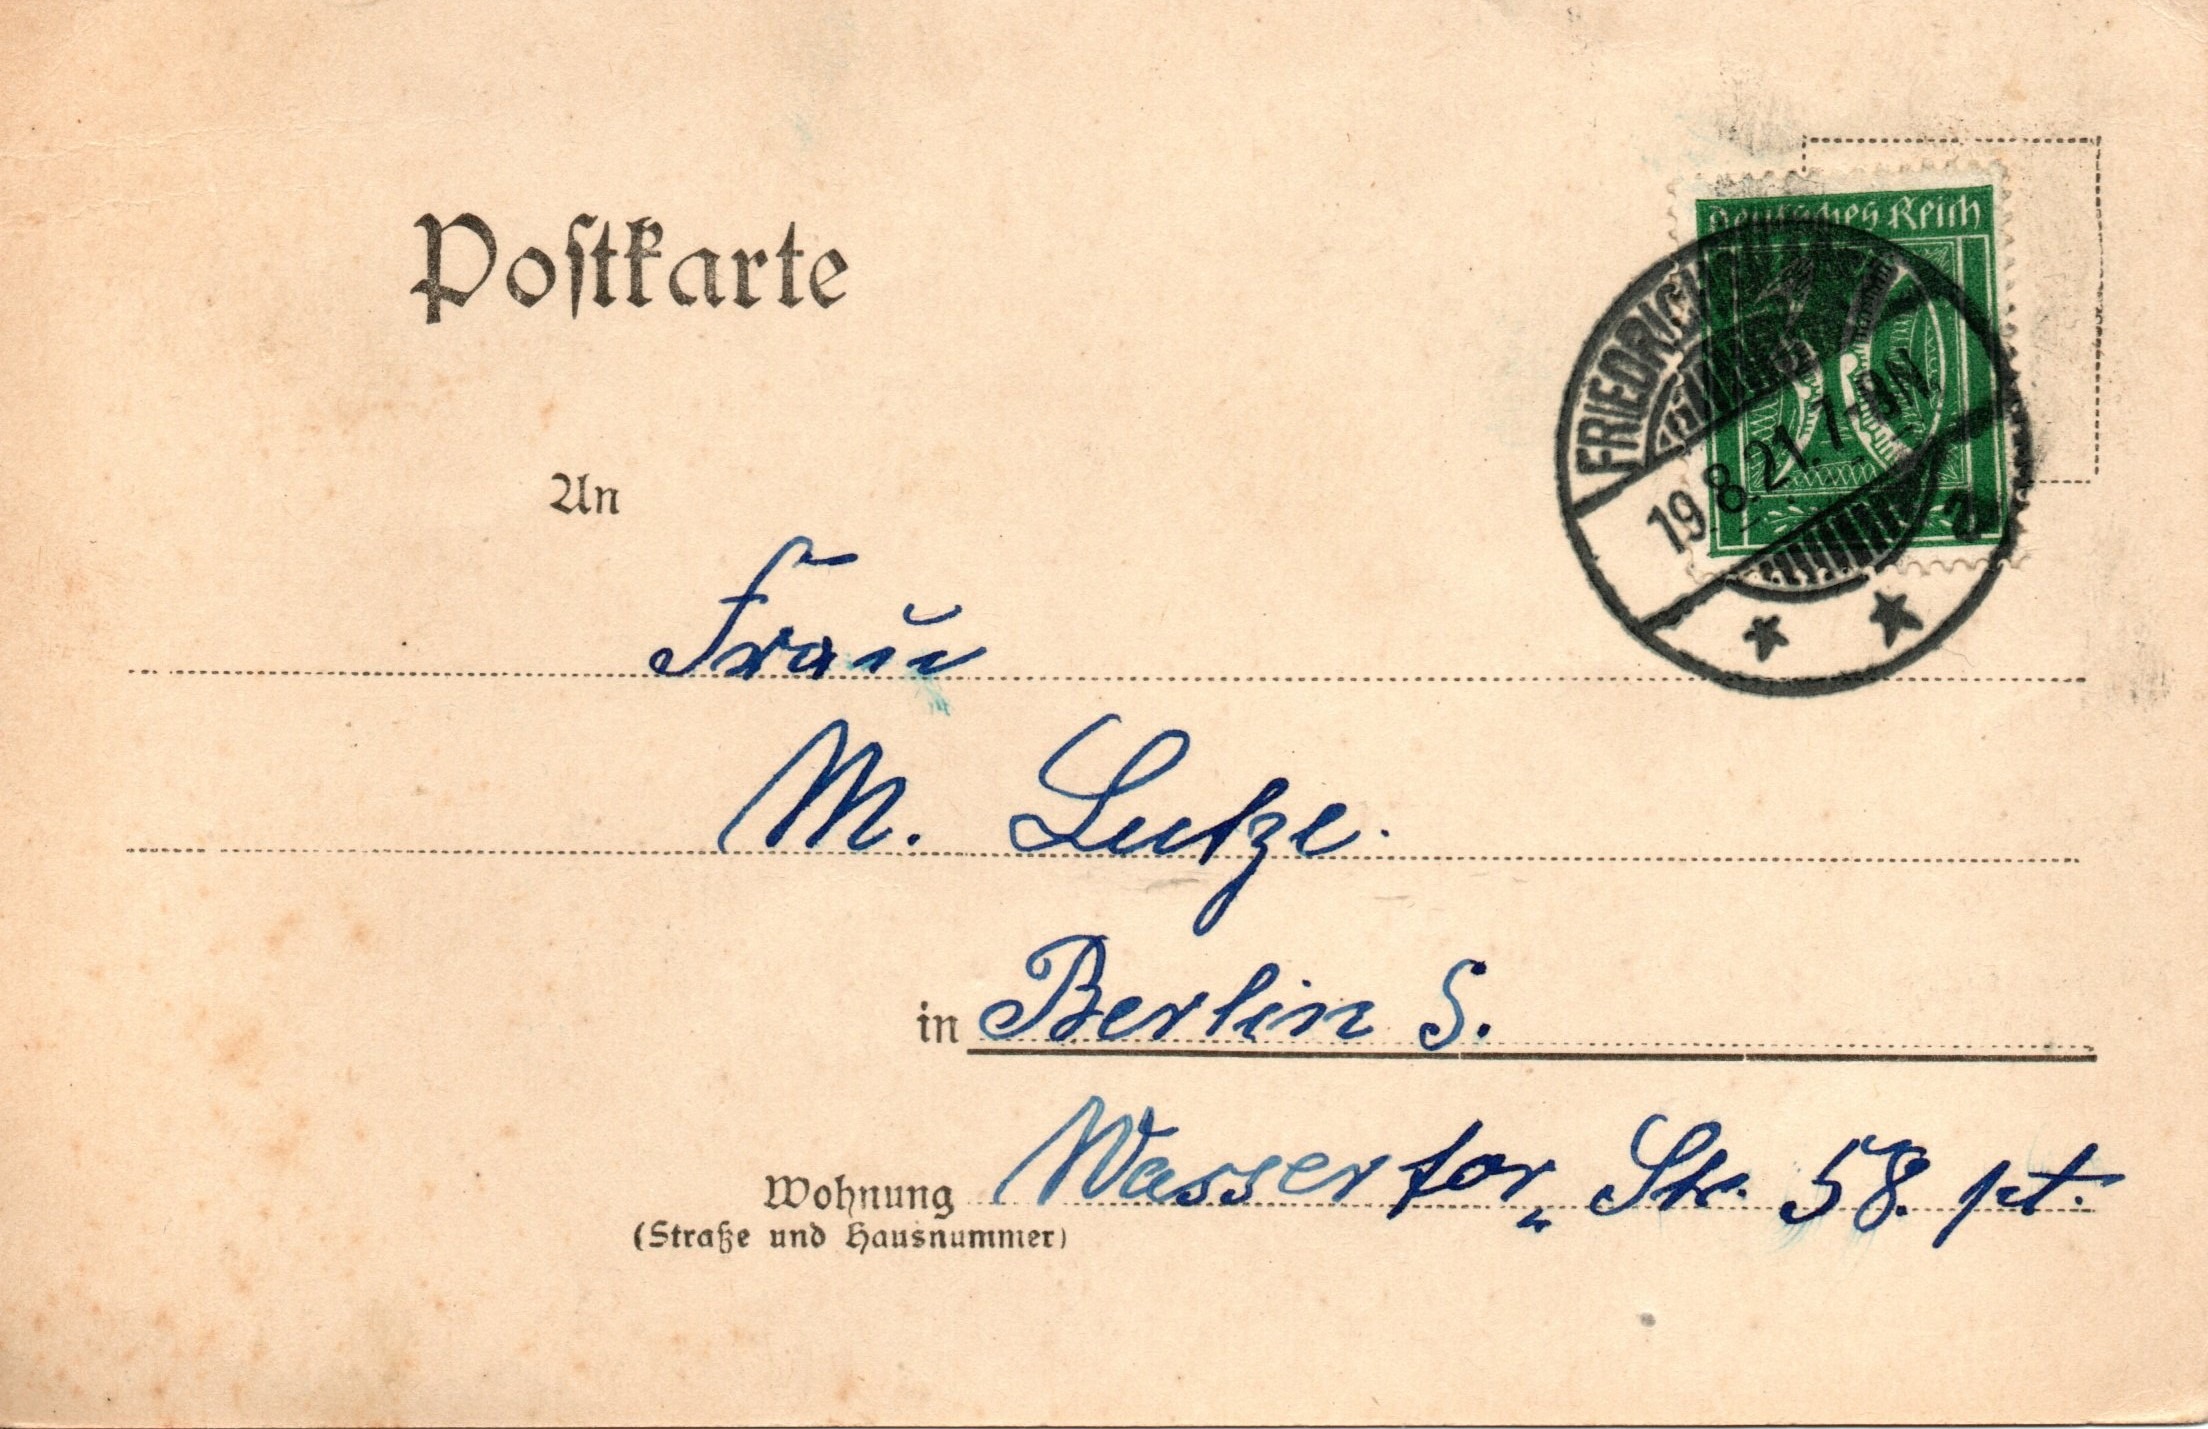 Deutsches Reich
Postkarte
19.8.21.7-8N.
a
An
Frau
M. Lutze.
in Berlin S.
Wassertor„ Str. 58. pt.
Wohnung
(Straße und Hausnummer)